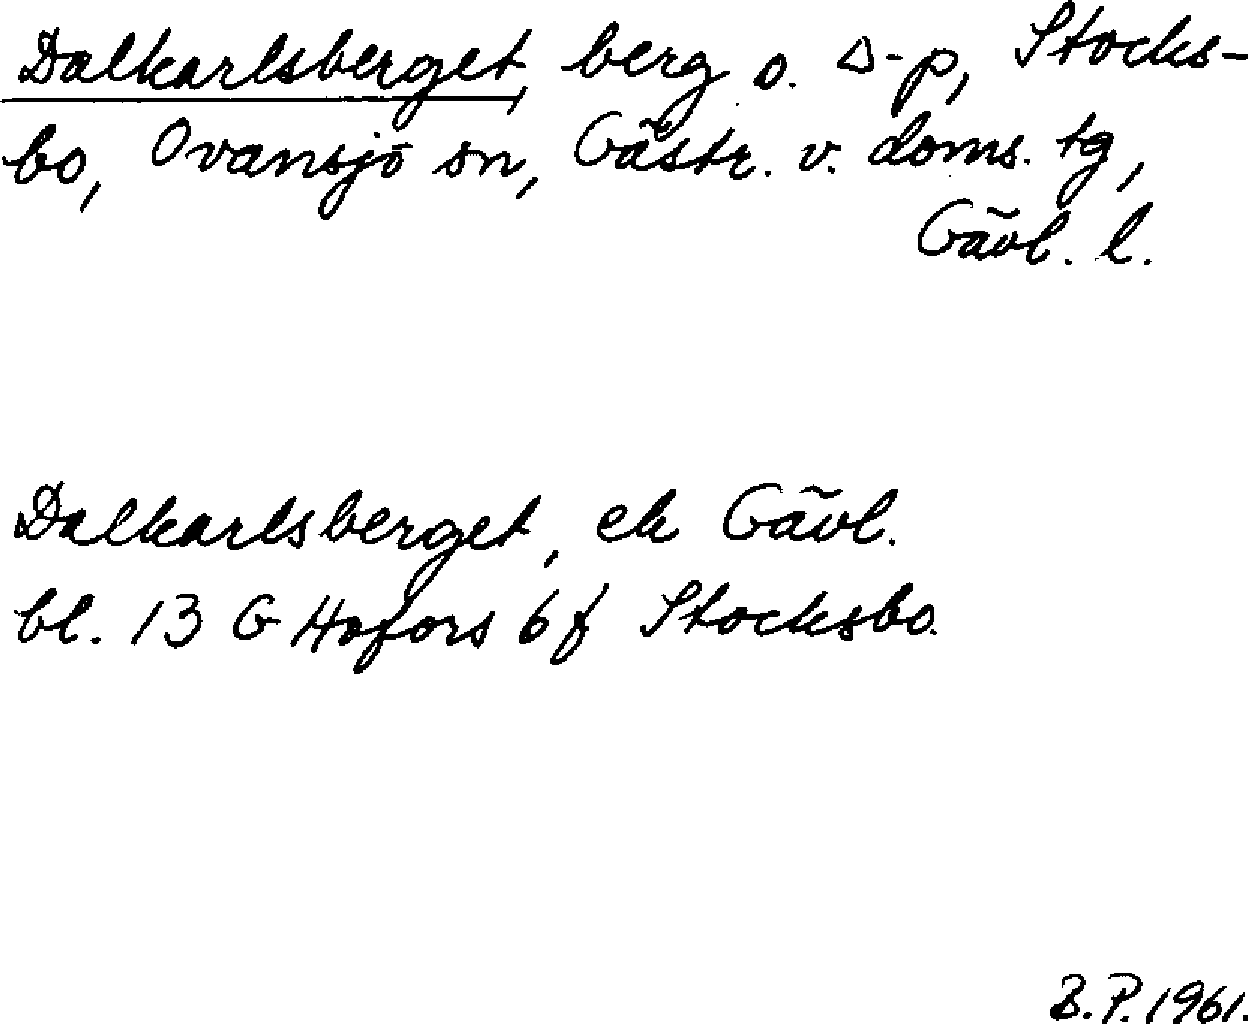 Dalkarlsberget, berg o. Δ-p, Stocks-
bo, Ovansjö sn, Gästr. v. doms. tg,
Gävl. l.
Dalkarlsberget, ek Gävl.
bl. 13 G Hofors 6 f Stocksbo.
B.P. 1961.